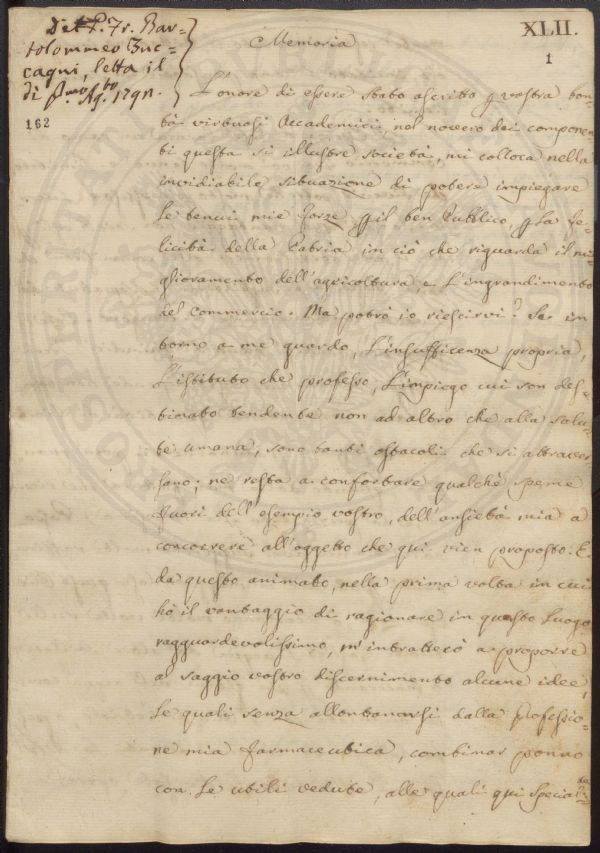 Del P. Fr. Bar-
tolommeo Zuc-
cagni, letta il
di p.mo Ag.to 1791.
162
XLII.
1
Memoria
L'onore di essere stato ascritto p vostra bon-
tà virtuosi Accademici, nel novero dei componen-
ti questa sì illustre società, mi colloca nella
invidiabile situazione di potere impiegare
le tenui mie forze p il ben Pubblico p la fe-
licità della Patria in ciò che riguarda il mi-
glioramento dell'agricoltura, e L'ingrandimento
del Commercio. Ma potrò io riescirvi? Se in
torno a me guardo, L'insufficenza propria,
L'istituto che professo, L'impiego cui son des-
tinato tendente non ad altro che alla salu-
te umana, sono tanti ostacoli che si attraver
sano; ne resta a confortare qualchè speme
fuori dell'esempio vostro, dell'ansietà mia a
concorrere all'oggetto che qui vien proposto. E
da questo animato, nella prima volta in cui
hò il vantaggio di ragionare in questo Luogo
ragguardevolissimo, m'intratterò a proporre
al saggio vostro discernimento alcune idee,
le quali senza allontanarsi dalla Professio-
ne mia farmaceutica, combinar ponno
con le utili vedute, alle quali qui special